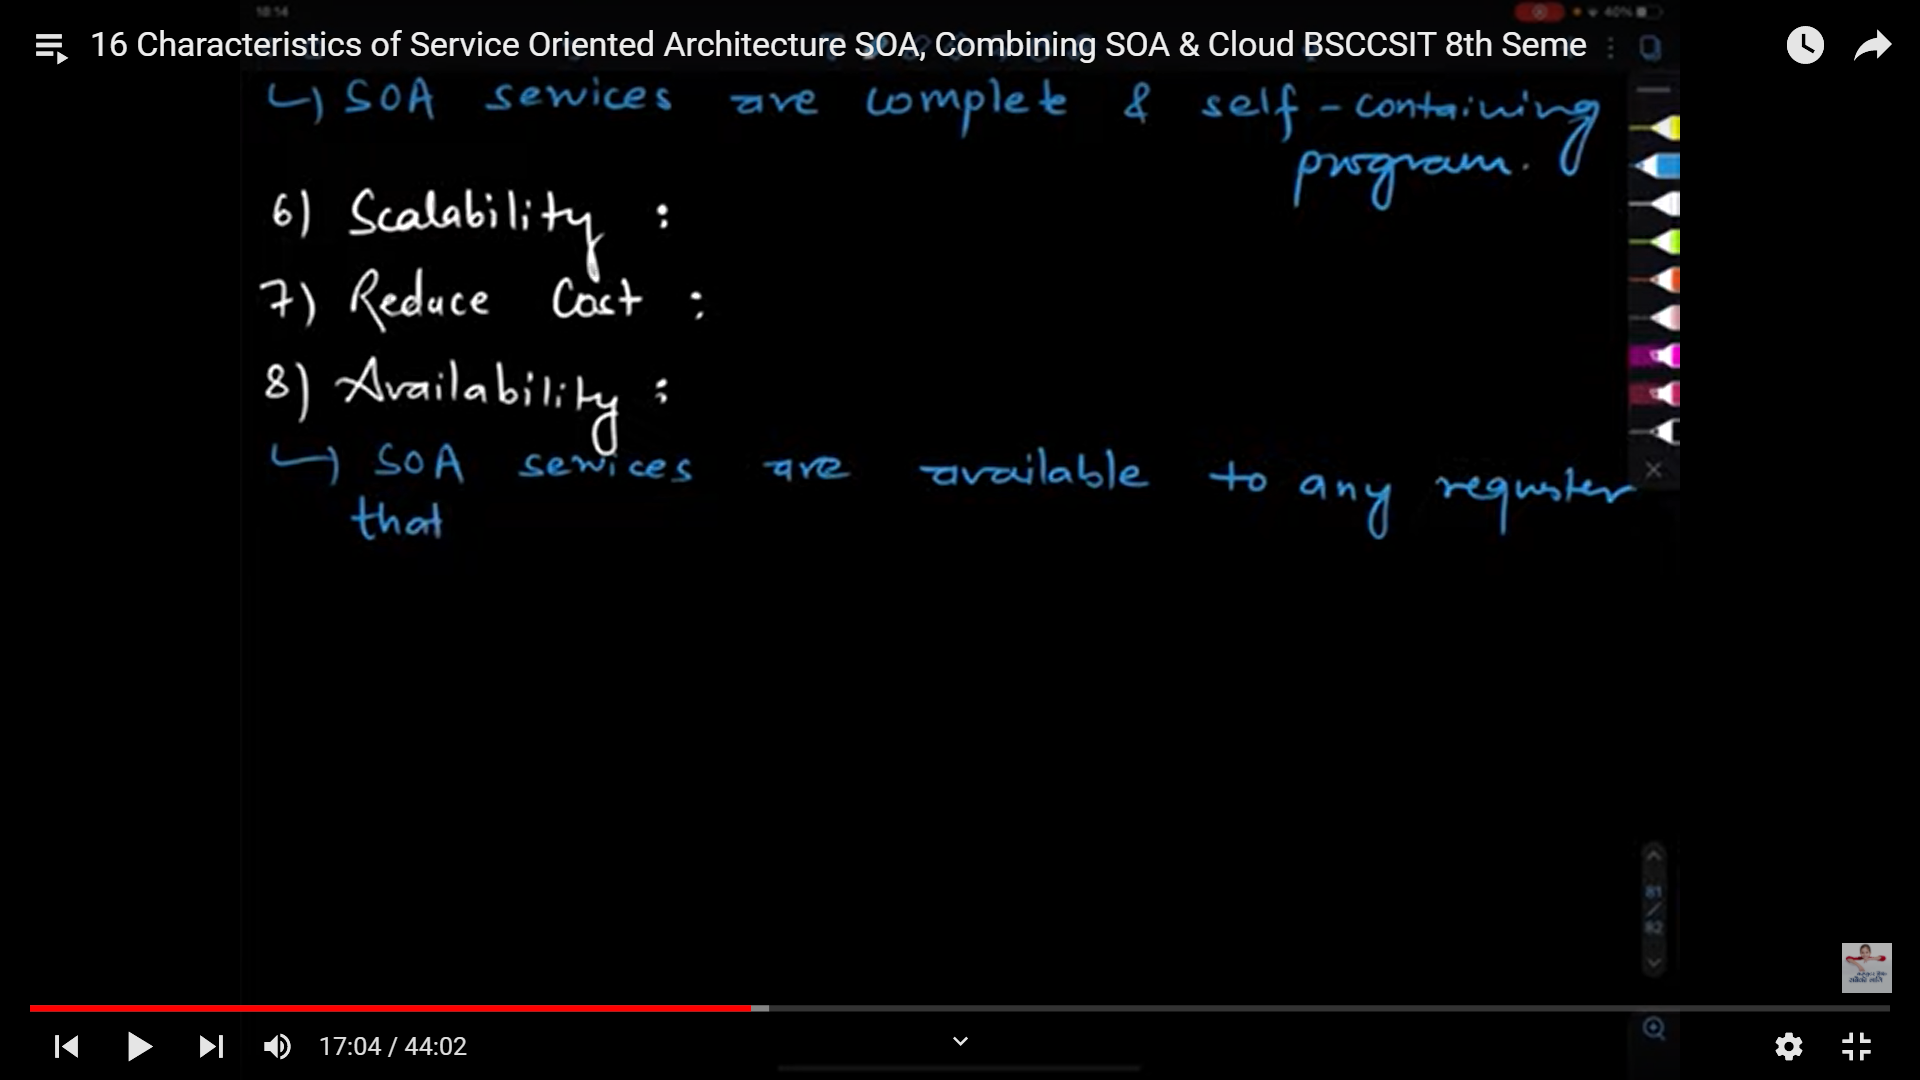 18:14
40%
16 Characteristics of Service Oriented Architecture SOA, Combining SOA & Cloud BSCCSIT 8th Seme
↳ SOA services are complete & self-containing
program.
6) Scalability :
7) Reduce Cost :
8) Availability :
↳ SOA services are available to any requster
that
81
/
82
17:04 / 44:02